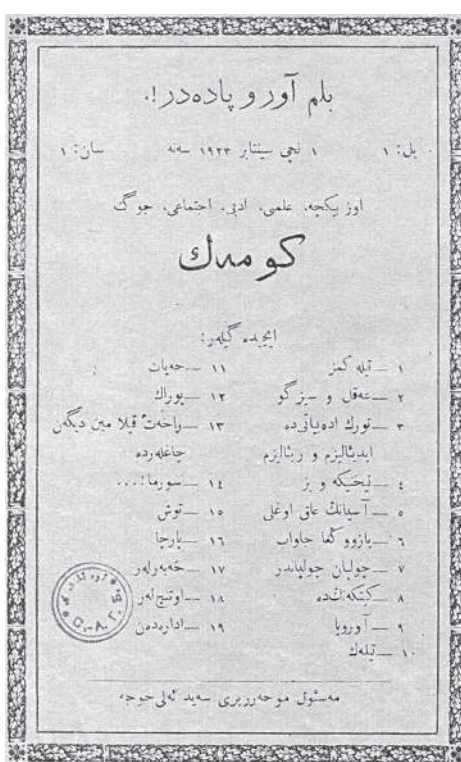 بلم آوروپاده‌در!.
یل: ۱ ۱ نچی سینتابر ۱۹۲۳ سه‌نه سان: ۱
اوز بیکچه، علمی، ادبی، اجتماعی، جوڭ
کومه‌ك
ایچیده گیلەر:
۱ — تیله کمز
۲ — عه‌قل و سیزگو
۳ — تورك اده‌بیاتی‌ده
ایدیئالیزم و ریئالیزم
٤ — تیخنیکه و بز
٥ — آسیانڭ عاق اوغلی
٦ — یازووڭغا جاواب
۷ — چولپان جولپاندر
۸ — کتکه‌نده
۹ — آوروپا
۱۰ — تیله‌ك
۱۱ — حه‌یات
۱۲ — یوراك
۱۳ — راحه‌ت قیلا مین دیگه‌ن
چاغله‌رده
۱٤ — سورما!...
۱٥ — توش
۱٦ — پارچا
۱۷ — خه‌به‌رله‌ر
۱۸ — اوتنچ‌له‌ر
۱۹ — اداره‌ده‌ن
С.-А. Г.
مه‌سئول موحه‌رریری سه‌ید ئه‌لی حوجه